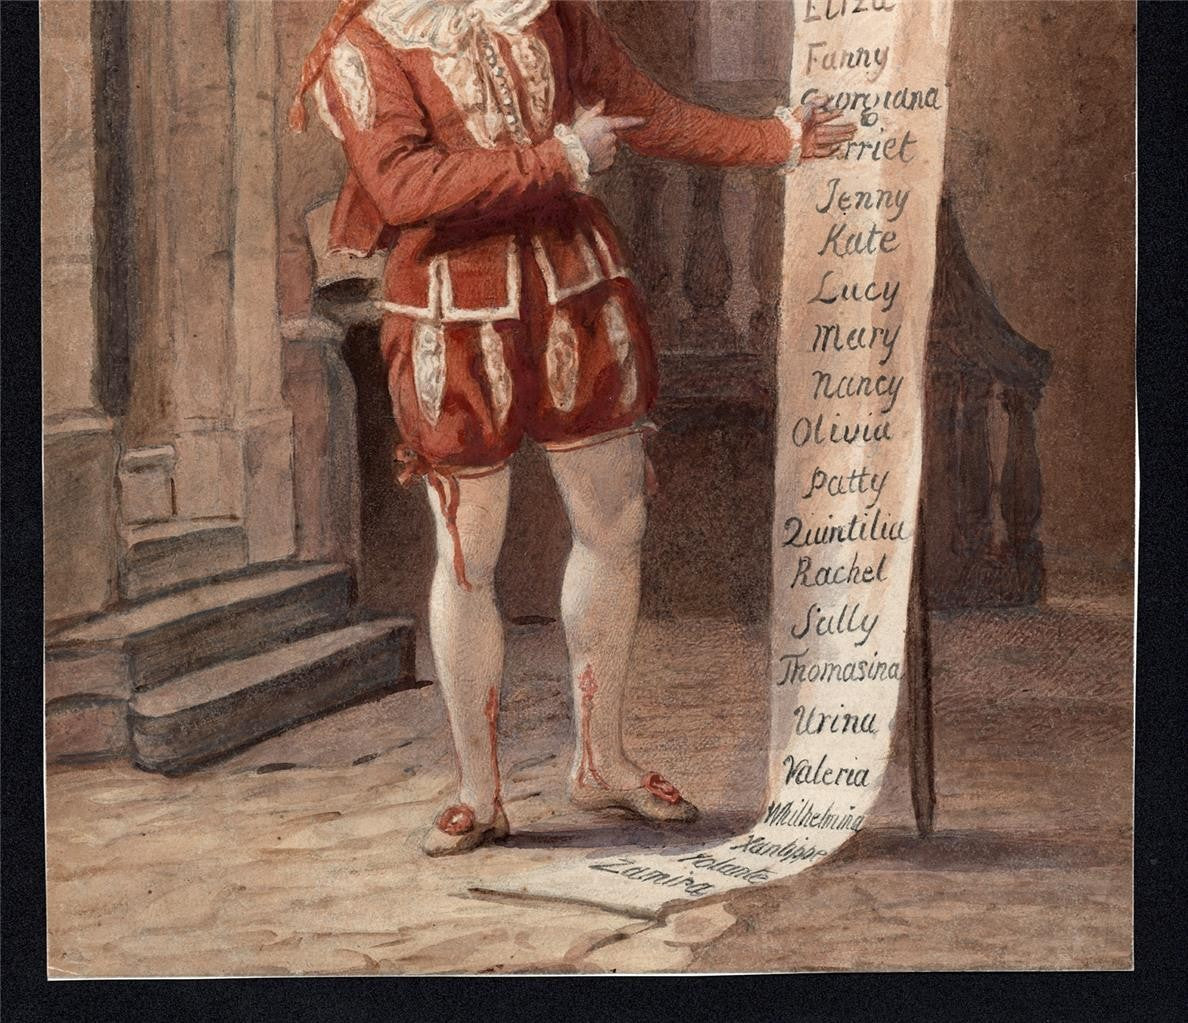 Eliza
Fanny
Georgiana
&
rriet
Jenny
Kate
Lucy
Mary
Nancy
Olivia
Patty
Quintilia
Rachel
Sally
Thomasina
Urina
Valeria
Whilhelmina
Xantippe
Yolante
Zamira